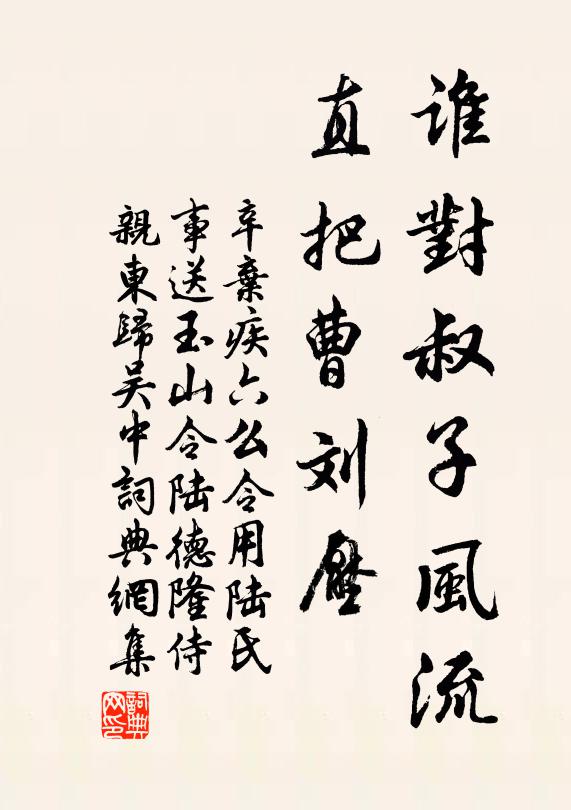 誰對叔子風流
直把曹刘壓
辛棄疾六么令用陆氏
事送玉山令陆德隆侍
親東歸吴中詞典網集
詞典
网印